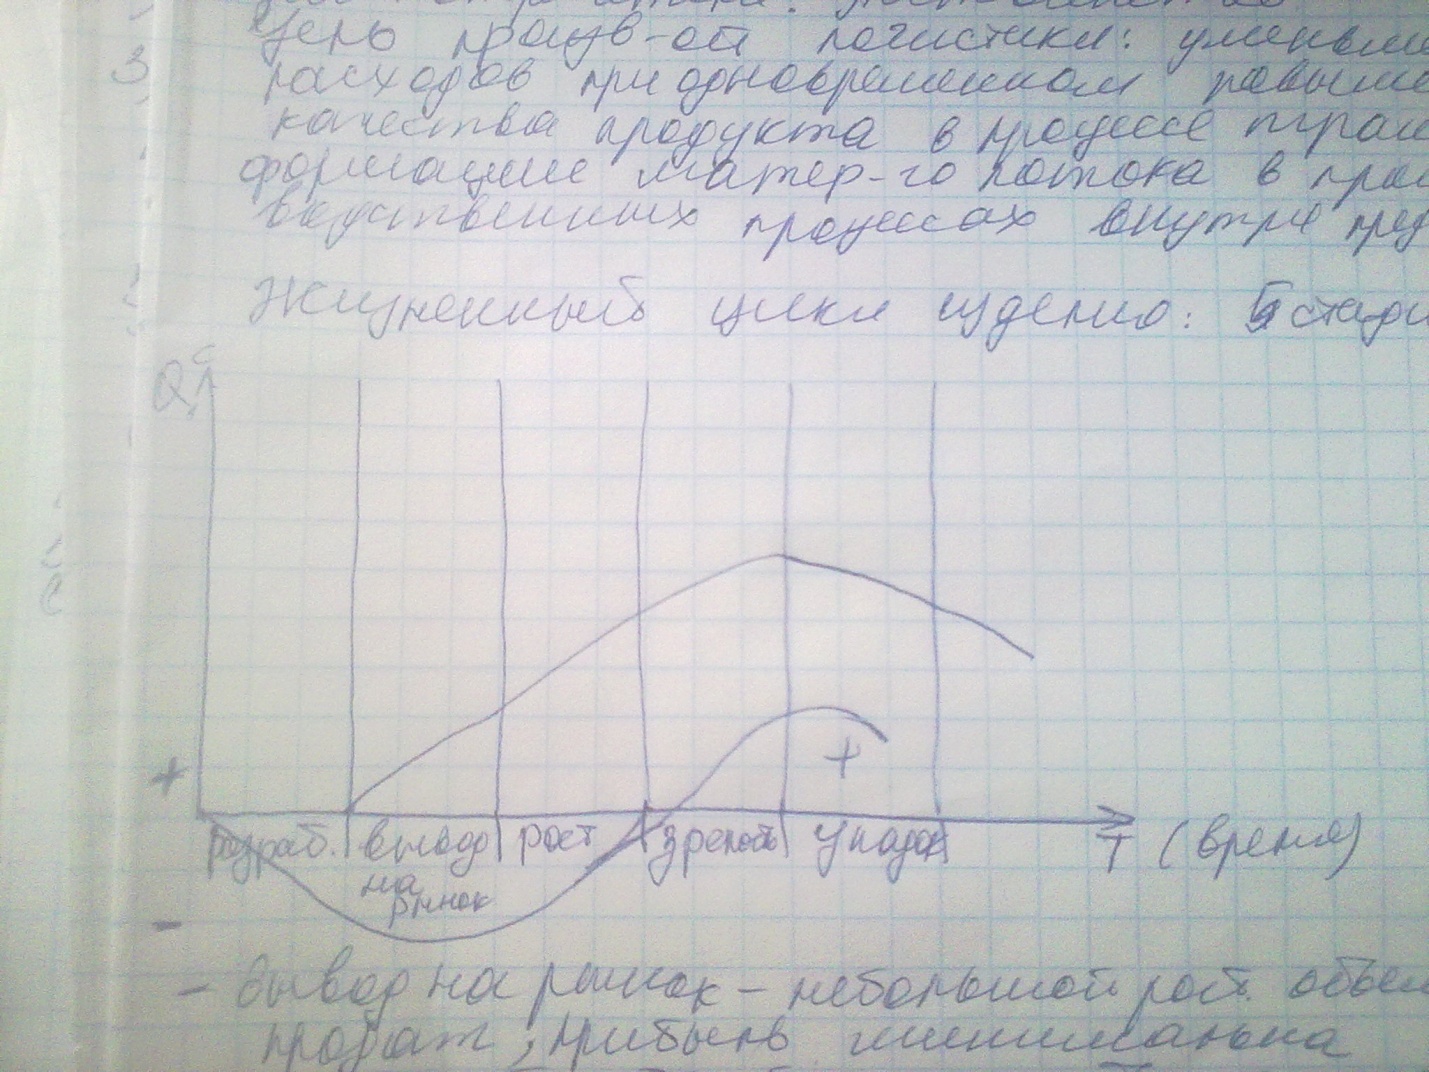 Цель произв-ой логистики: уменьше
расходов при одновременном повыше
качества продукта в процессе тран
формации матер-го потока в прои
водственных процессах внутри пред
Жизненный цикл изделию: 5 стади
Q
+
разраб. вывод рост зрелость упадок T (время)
на
рынок
+
-
- вывод на рынок - небольшой рост объем
продаж, прибыль минимальна